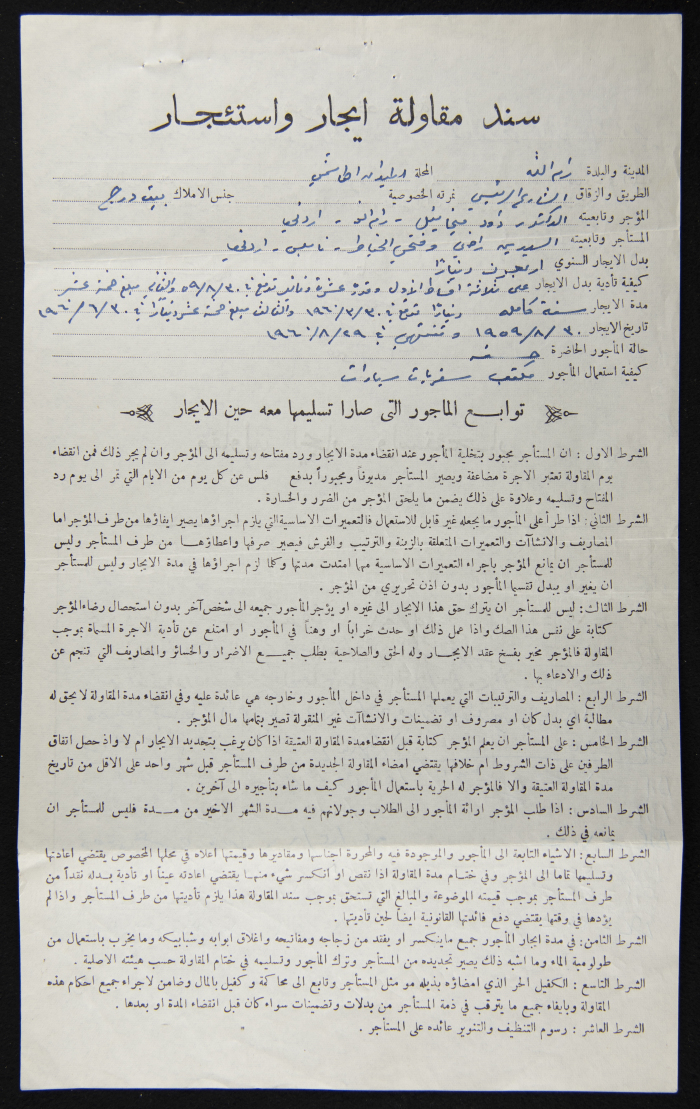 سند مقاولة ايجار واستئجار
المدينة والبلدة رام الله المحلة
الطريق والزقاق الشارع الرئيسي نمرته الخصوصية جنس الاملاك بيت درج
المؤجر وتابعيته الدكتور داود ميخائيل - رام الله - اردني
المستأجر وتابعيته السيدين راضي وفتحي الخياط - نابلس - اردني
بدل الايجار السنوي اربعون دينارا
كيفية تأدية بدل الايجار على ثلاثة اقساط الاول وقدره عشرة دنانير تدفع في ٥٩/٨/٣٠ والثاني مبلغ خمسة عشر
مدة الايجار سنة كاملة دينارا تدفع في ١٩٦٠/٣/٣٠ والثالث مبلغ خمسة عشر دينارا في ١٩٦٠/٦/٣٠
تاريخ الايجار ١٩٥٩/٨/٣٠ وتنتهي في ١٩٦٠/٨/٢٩
حالة المأجور الحاضرة حسنه
كيفية استعمال المأجور مكتب سفريات سيارات
توابع المأجور التى صارا تسليمها معه حين الايجار
الشرط الاول : ان المستأجر مجبور بتخلية المأجور عند انقضاء مدة الايجار ورد مفتاحه وتسليمه الى المؤجر وان لم يجر ذلك فمن انقضاء
يوم المقاولة تعتبر الاجرة مضاعفة ويصير المستأجر مديوناً ومجبوراً بدفع فلس عن كل يوم من الايام التي تمر الى يوم رد
المفتاح وتسليمه وعلاوة على ذلك يضمن ما يلحق المؤجر من الضرر والخسارة .
الشرط الثاني : اذا طرأ على المأجور ما يجعله غير قابل للاستعمال فالتعميرات الاساسية التي يلزم اجراؤها يصير ايفاؤها من طرف المؤجر اما
المصاريف والانشآت والتعميرات المتعلقة بالزينة والترتيب والفرش فيصير صرفها واعطاؤها من طرف المستأجر وليس
للمستأجر ان يمانع المؤجر باجراء التعميرات الاساسية مهما امتدت مدتها وكلما لزم اجراؤها في مدة الايجار وليس للمستأجر
ان يغير او يبدل تقسيم المأجور بدون اذن تحريري من المؤجر .
الشرط الثالث : ليس للمستأجر ان يترك حق هذا الايجار الى غيره او يؤجر المأجور جميعه الى شخص آخر بدون استحصال رضاء المؤجر
كتابة على نفس هذا الصك واذا عمل ذلك او حدث خراباً او وهناً في المأجور او امتنع عن تأدية الاجرة المسماة بموجب
المقاولة فالمؤجر مخير بفسخ عقد الايجار وله الحق والصلاحية بطلب جميع الاضرار والخسائر والمصاريف التي تنجم عن
ذلك والادعاء بها .
الشرط الرابع : المصاريف والترتيبات التي يعملها المستأجر في داخل المأجور وخارجه هي عائدة عليه وفي انقضاء مدة المقاولة لا يحق له
مطالبة اي بدل كان او مصروف او تضمينات والانشاآت غير المنقولة تصير بتمامها مال المؤجر .
الشرط الخامس : على المستأجر ان يعلم المؤجر كتابة قبل انقضاء مدة المقاولة العتيقة اذا كان يرغب بتجديد الايجار ام لا واذ حصل اتفاق
الطرفين على ذات الشروط ام خلافها يقتضي امضاء المقاولة الجديدة من طرف المستأجر قبل شهر واحد على الاقل من تاريخ
مدة المقاولة العتيقة والا فالمؤجر له الحرية باستعمال المأجور كيف ما شاء بتأجيره الى آخرين .
الشرط السادس : اذا طلب المؤجر ارائة المأجور الى الطلاب وجولانهم فيه مدة الشهر الاخير من مدة فليس للمستأجر ان
يمانعه في ذلك .
الشرط السابع : الاشياء التابعة الى المأجور والموجودة فيه والمحررة اجناسها ومقاديرها وقيمتها اعلاه في محلها المخصوص يقتضي اعادتها
وتسليمها تماما الى المؤجر وفي ختام مدة المقاولة اذا نقص او انكسر شيء منها يقتضي اعادته عيناً او تأدية بدله نقداً من
طرف المستأجر بموجب قيمته الموضوعة والمبالغ التي تستحق بموجب سند المقاولة هذا يلزم تأديتها من طرف المستأجر واذا لم
يؤدها في وقتها يقتضي دفع فائدتها القانونية ايضاً لحين تأديتها .
الشرط الثامن : في مدة ايجار المأجور جميع ماينكسر او يفقد من زجاجه ومفاتيحه واغلاق ابوابه وشبابيكه وما يخرب باستعمال من
طولومبة الماء وما اشبه ذلك يصير تجديده من المستأجر وترك المأجور وتسليمه في ختام المقاولة حسب هيئته الاصلية .
الشرط التاسع : الكفيل الحر الذي امضاؤه بذيله هو مثل المستأجر وتابع الى محاكمة وكفيل بالمال وضامن لاجراء جميع احكام هذه
المقاولة وبايفاء جميع ما يترقب في ذمة المستأجر من بدلات وتضمينات سواء كان قبل انقضاء المدة او بعدها .
الشرط العاشر : رسوم التنظيف والتنوير عائده على المستأجر .